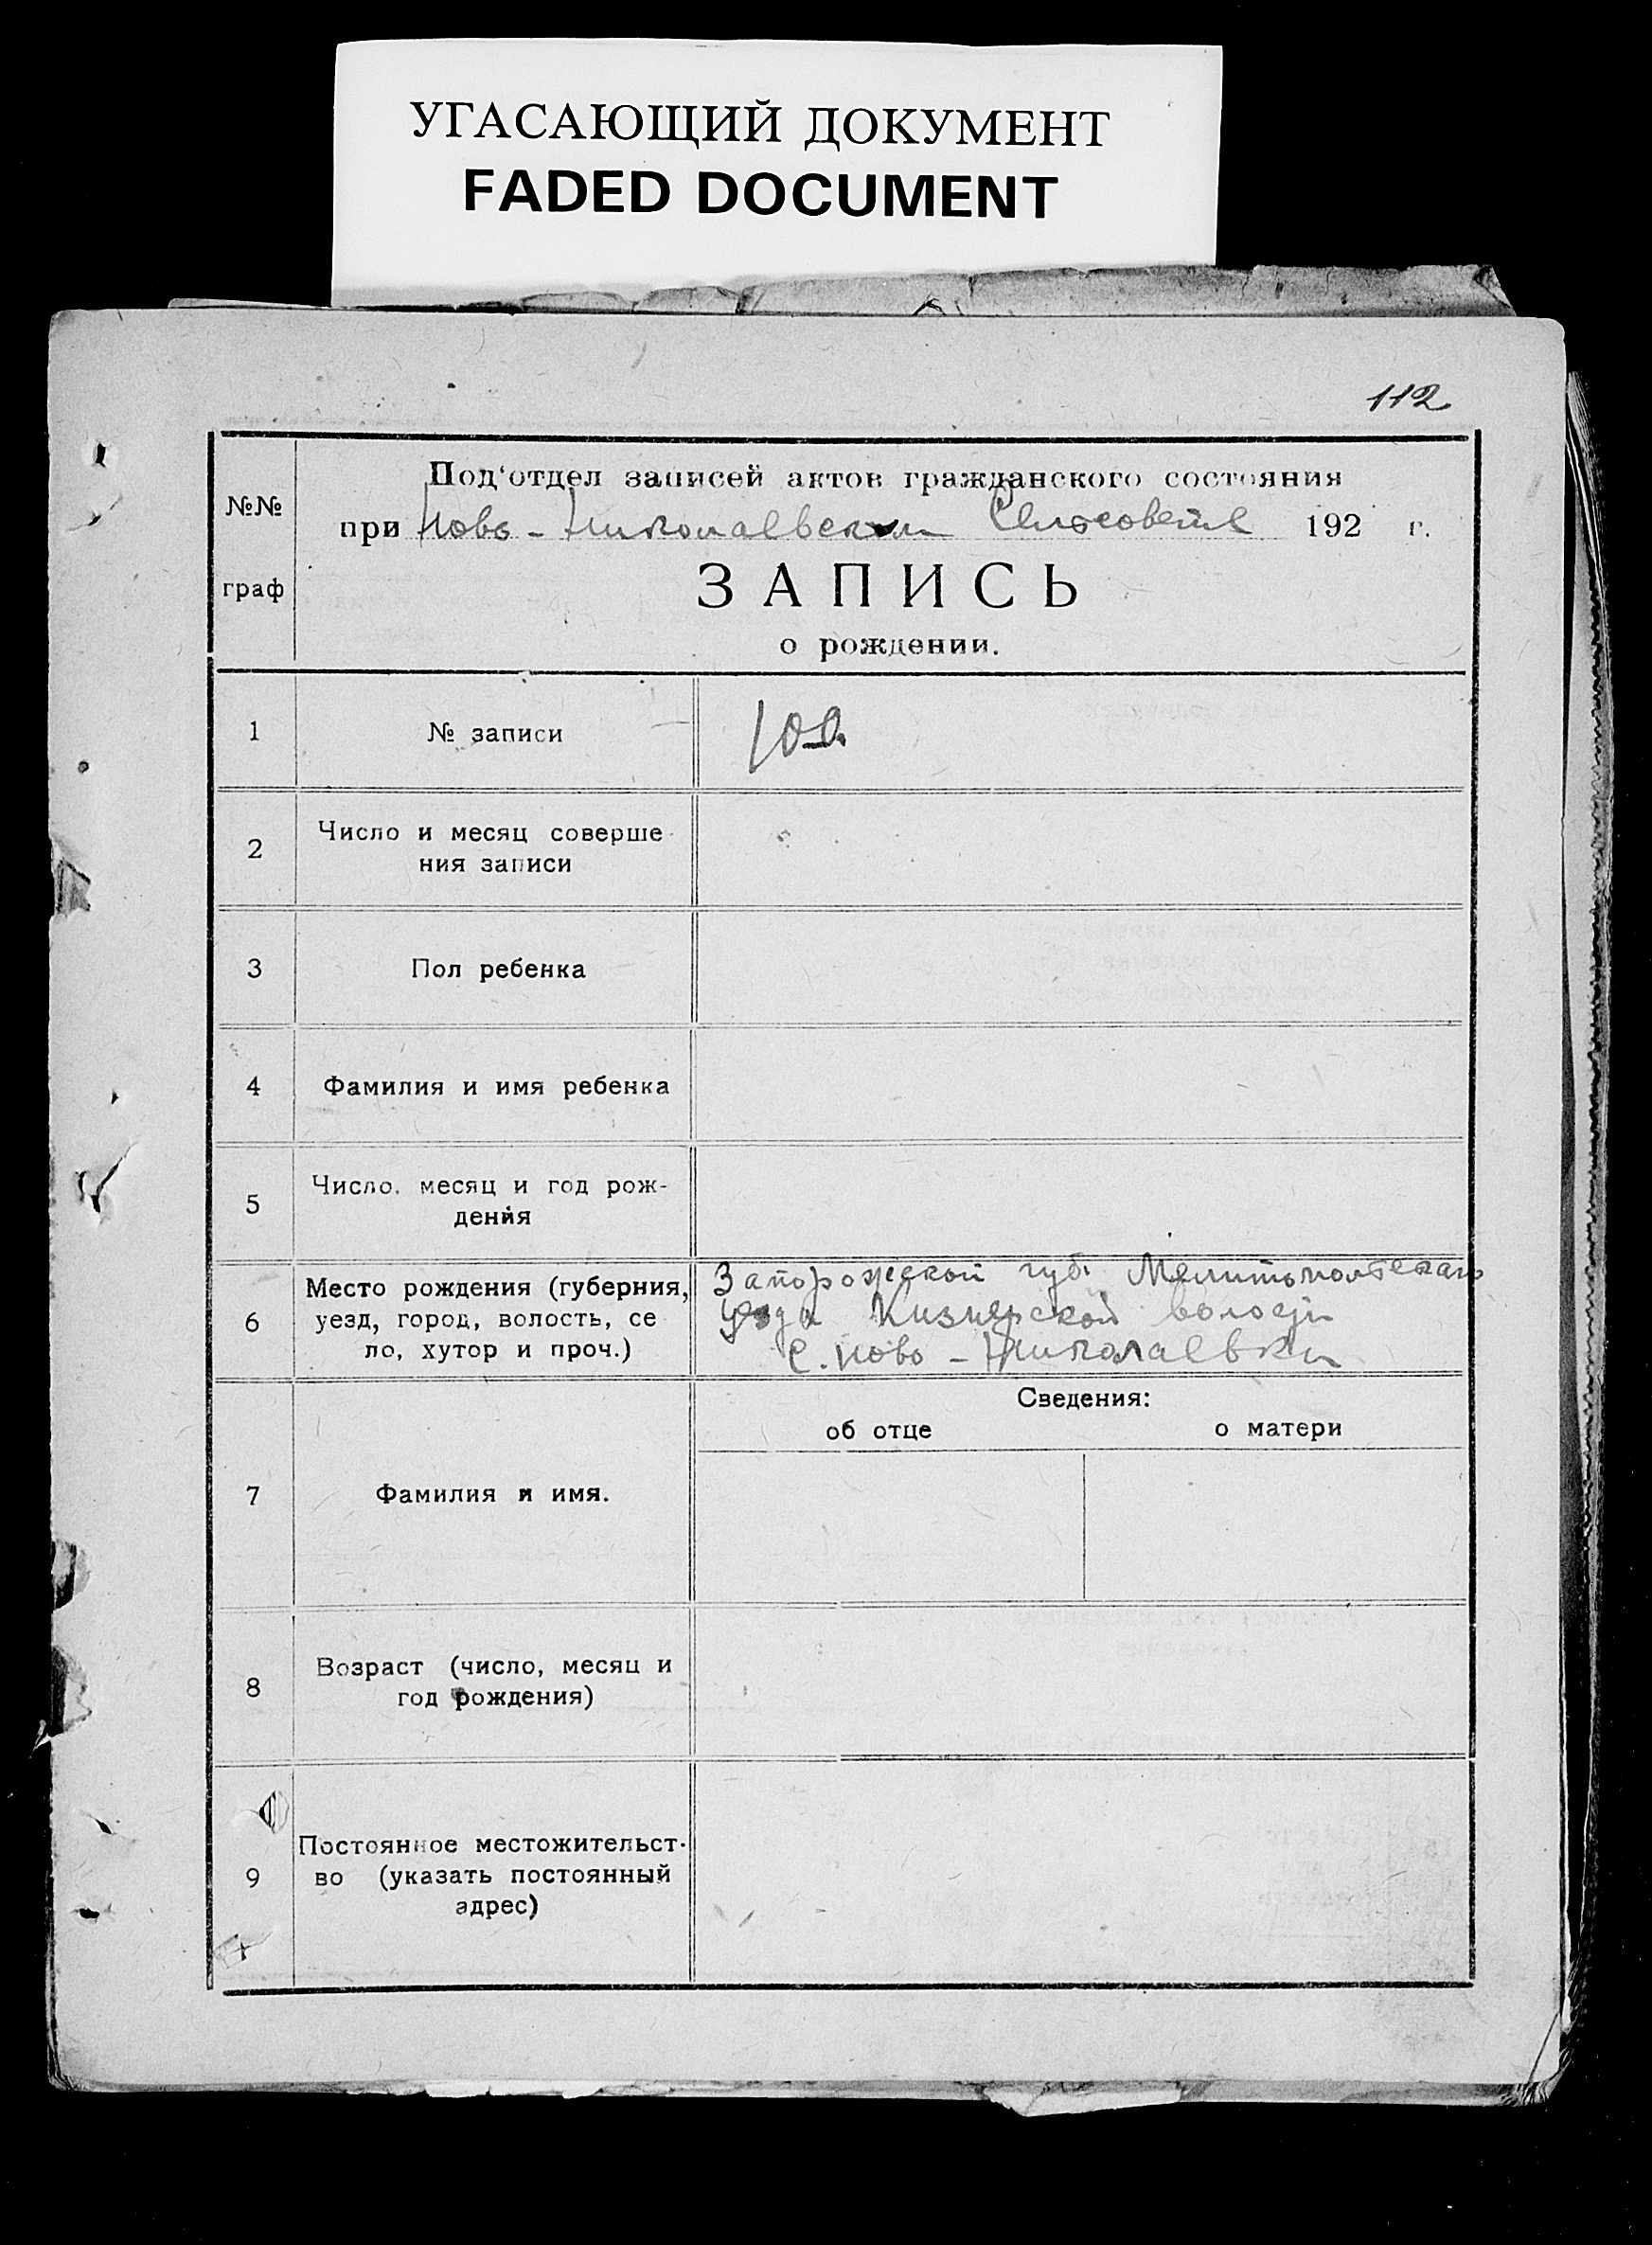 УГАСАЮЩИЙ ДОКУМЕНТ
FADED DOCUMENT
112
№№
граф
Под‘отдел записей актов гражданского состояния
при Ново-Николаевском Сельсовете 192 г.
ЗАПИСЬ
о рождении.
1 № записи 100.
2 Число и месяц соверше
ния записи
3 Пол ребенка
4 Фамилия и имя ребенка
5 Число, месяц и год рож-
дения
6 Место рождения (губерния,
уезд, город, волость, се
ло, хутор и проч.)
Запорожской губ. Мелитопольскаго
уезда волости
с. Ново-Николаевки
Сведения:
об отце о матери
7 Фамилия и имя.
8 Возраст (число, месяц и
год рождения)
9 Постоянное местожительст-
во (указать постоянный
адрес)